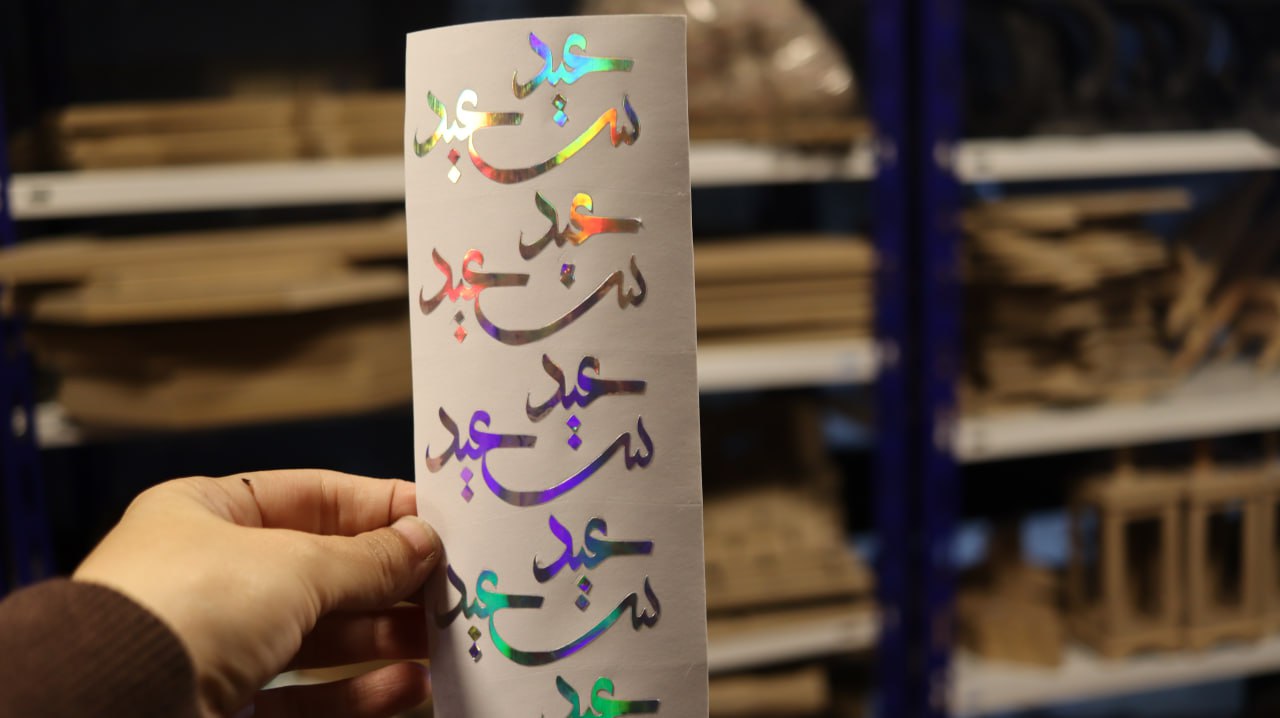 عيد
سعيد
عيد
سعيد
عيد
سعيد
عيد
سعيد
عيد